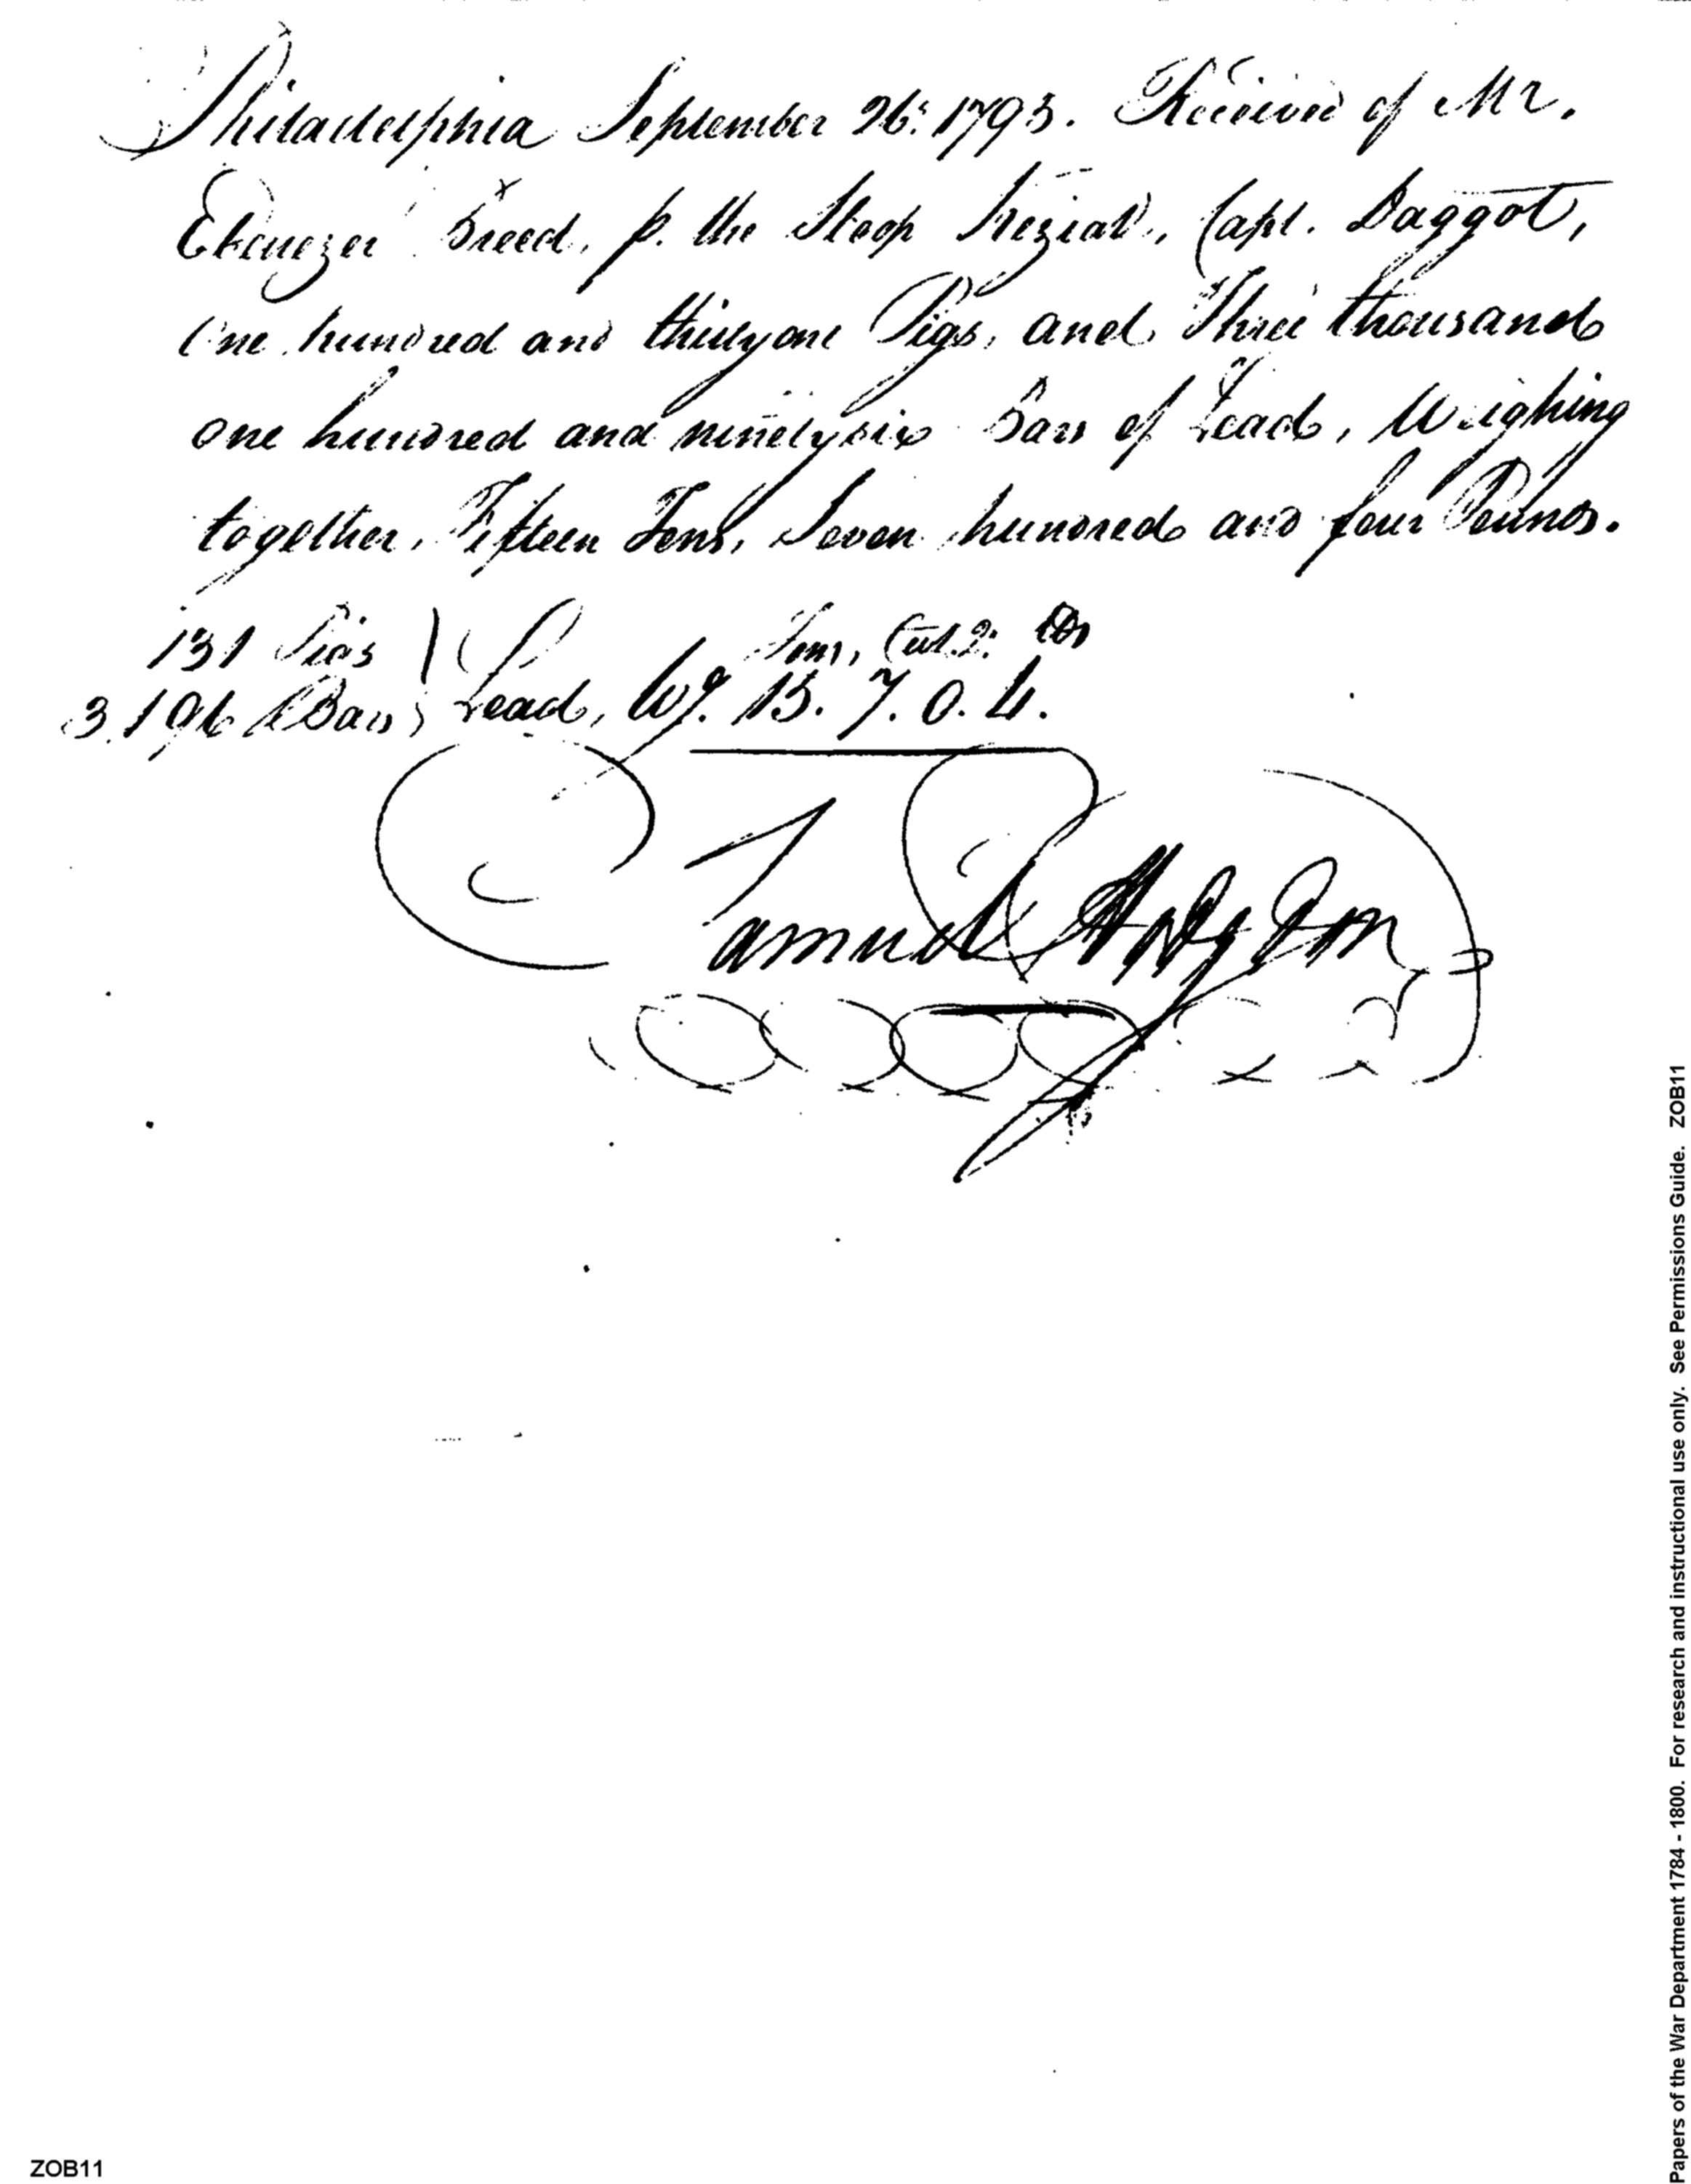 Philadelphia September 26: 1793. Received of Mr.
Ebenezer Breed, p. the Sloop Keziah, Capt. Daggot,
One hundred and thirtyone Pigs, and Three thousand
one hundred and ninetysix Bars of Lead, Weighing
together, Fifteen Tons, Seven hundred and four Pounds.
Tons, Cwt. 2: lbs
131 Pigs
3.196 Bars } Lead, Wg. 15. 7. 0. 4.
Samuel Hodgdon
Papers of the War Department 1784 - 1800. For research and instructional use only. See Permissions Guide. ZOB11
ZOB11